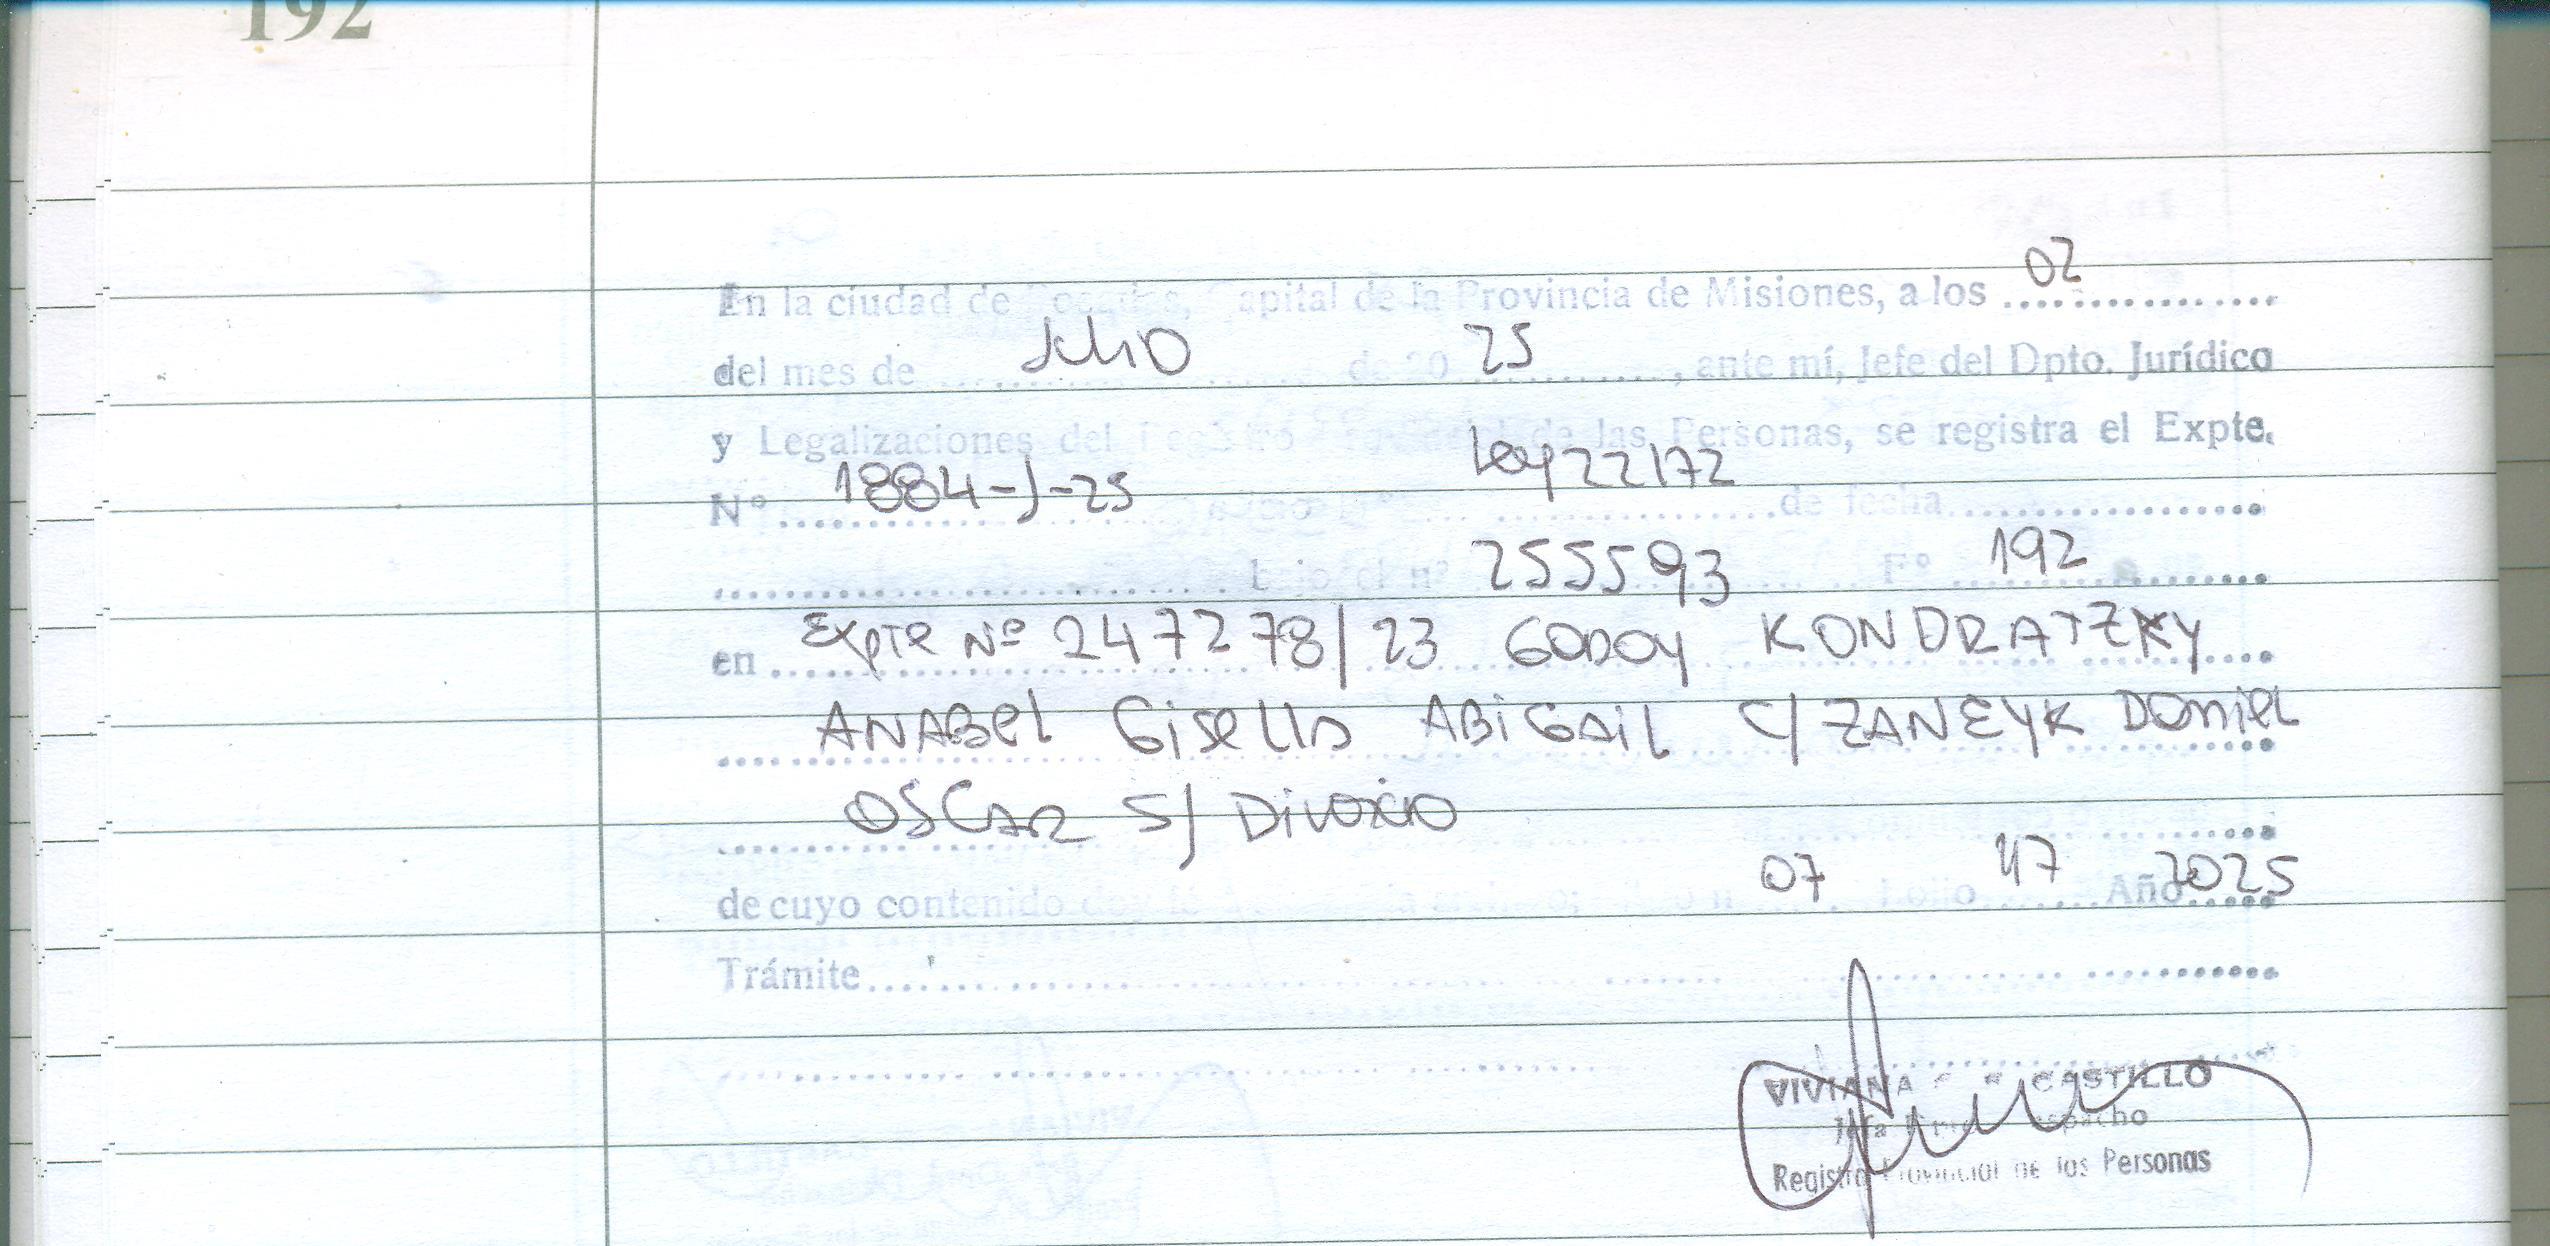 192
En la ciudad de Posadas, Capital de la Provincia de Misiones, a los 02
del mes de Julio de 20 25, ante mí, Jefe del Dpto. Jurídico
y Legalizaciones del Registro Provincial de las Personas, se registra el Expte.
Nº 1884-J-25 Ley 22172 de fecha
bajo el nº 255593 Fº 192
en Expte Nº 247278/23 GODOY KONDRATZKY
ANABEL GISELLA ABIGAIL C/ ZANEYK DANIEL
OSCAR S/ DIVORCIO
de cuyo contenido doy fé 07 Folio 47 Año 2025
Trámite
VIVIANA CASTILLO
Jefa Despacho
Registro Provincial de los Personas